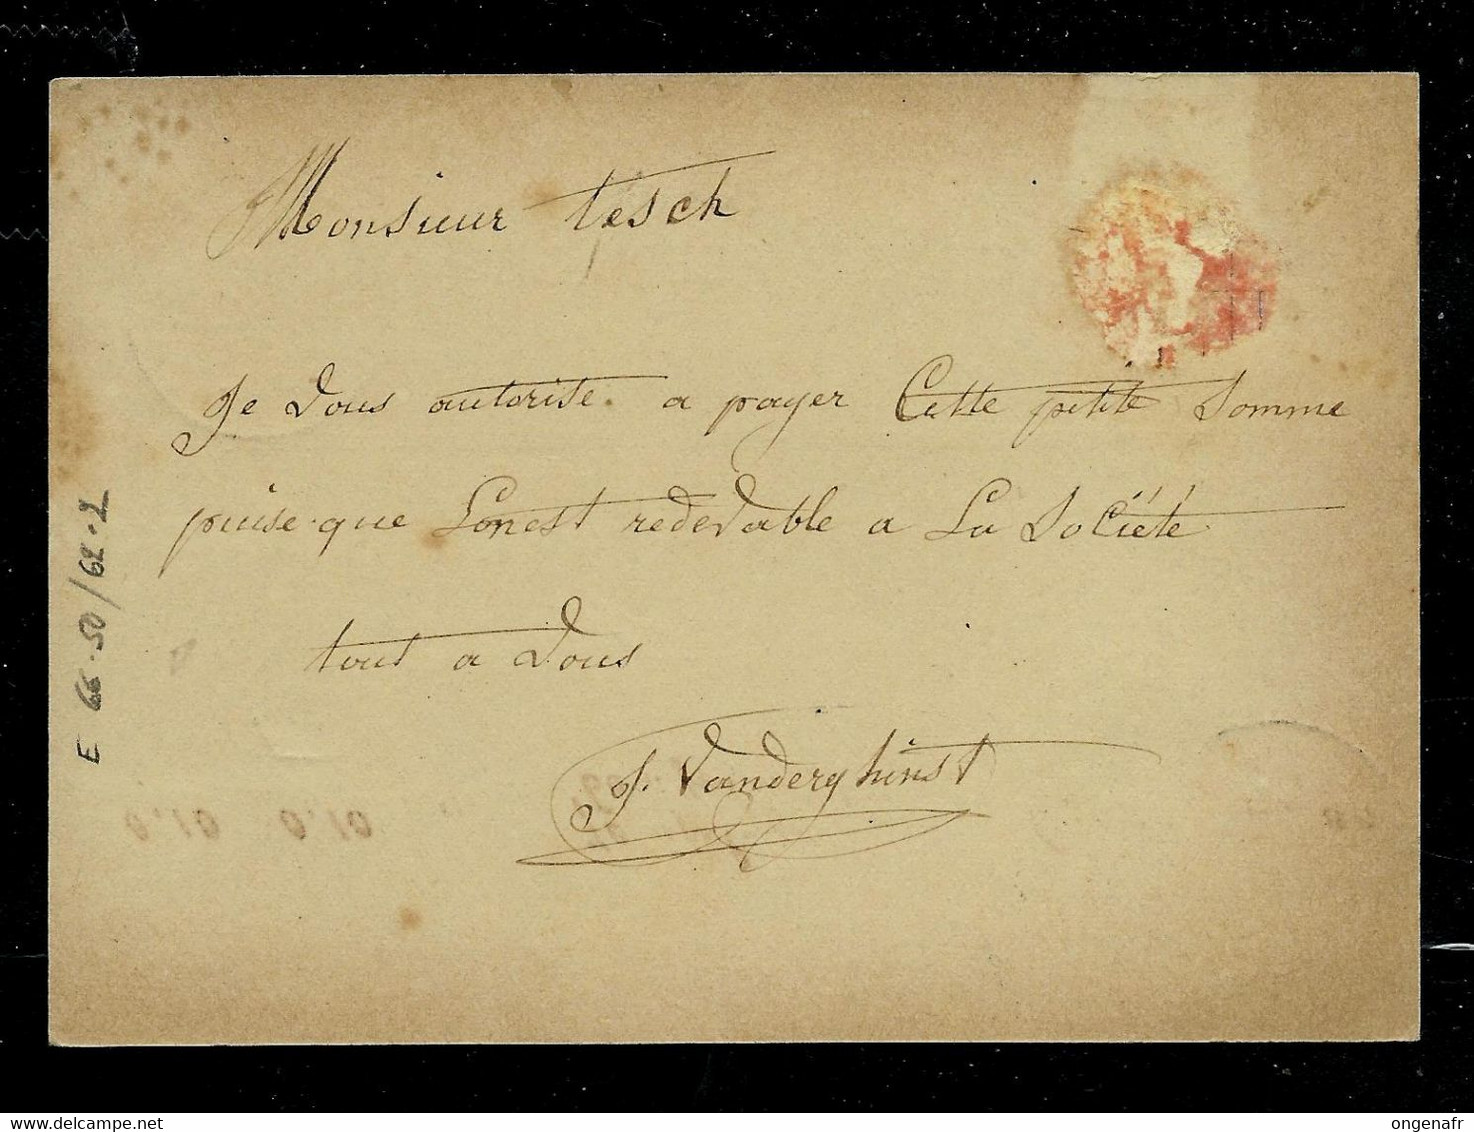 Monsieur tesch
Je Vous autorise. a payer Cette petite Somme
puise.que Lonest redevable a La Société.
tout a Vous
J. Vanderghinst
E 66.50/62.2
0.10 0.10 0.10
delcampe.net
ongenafr